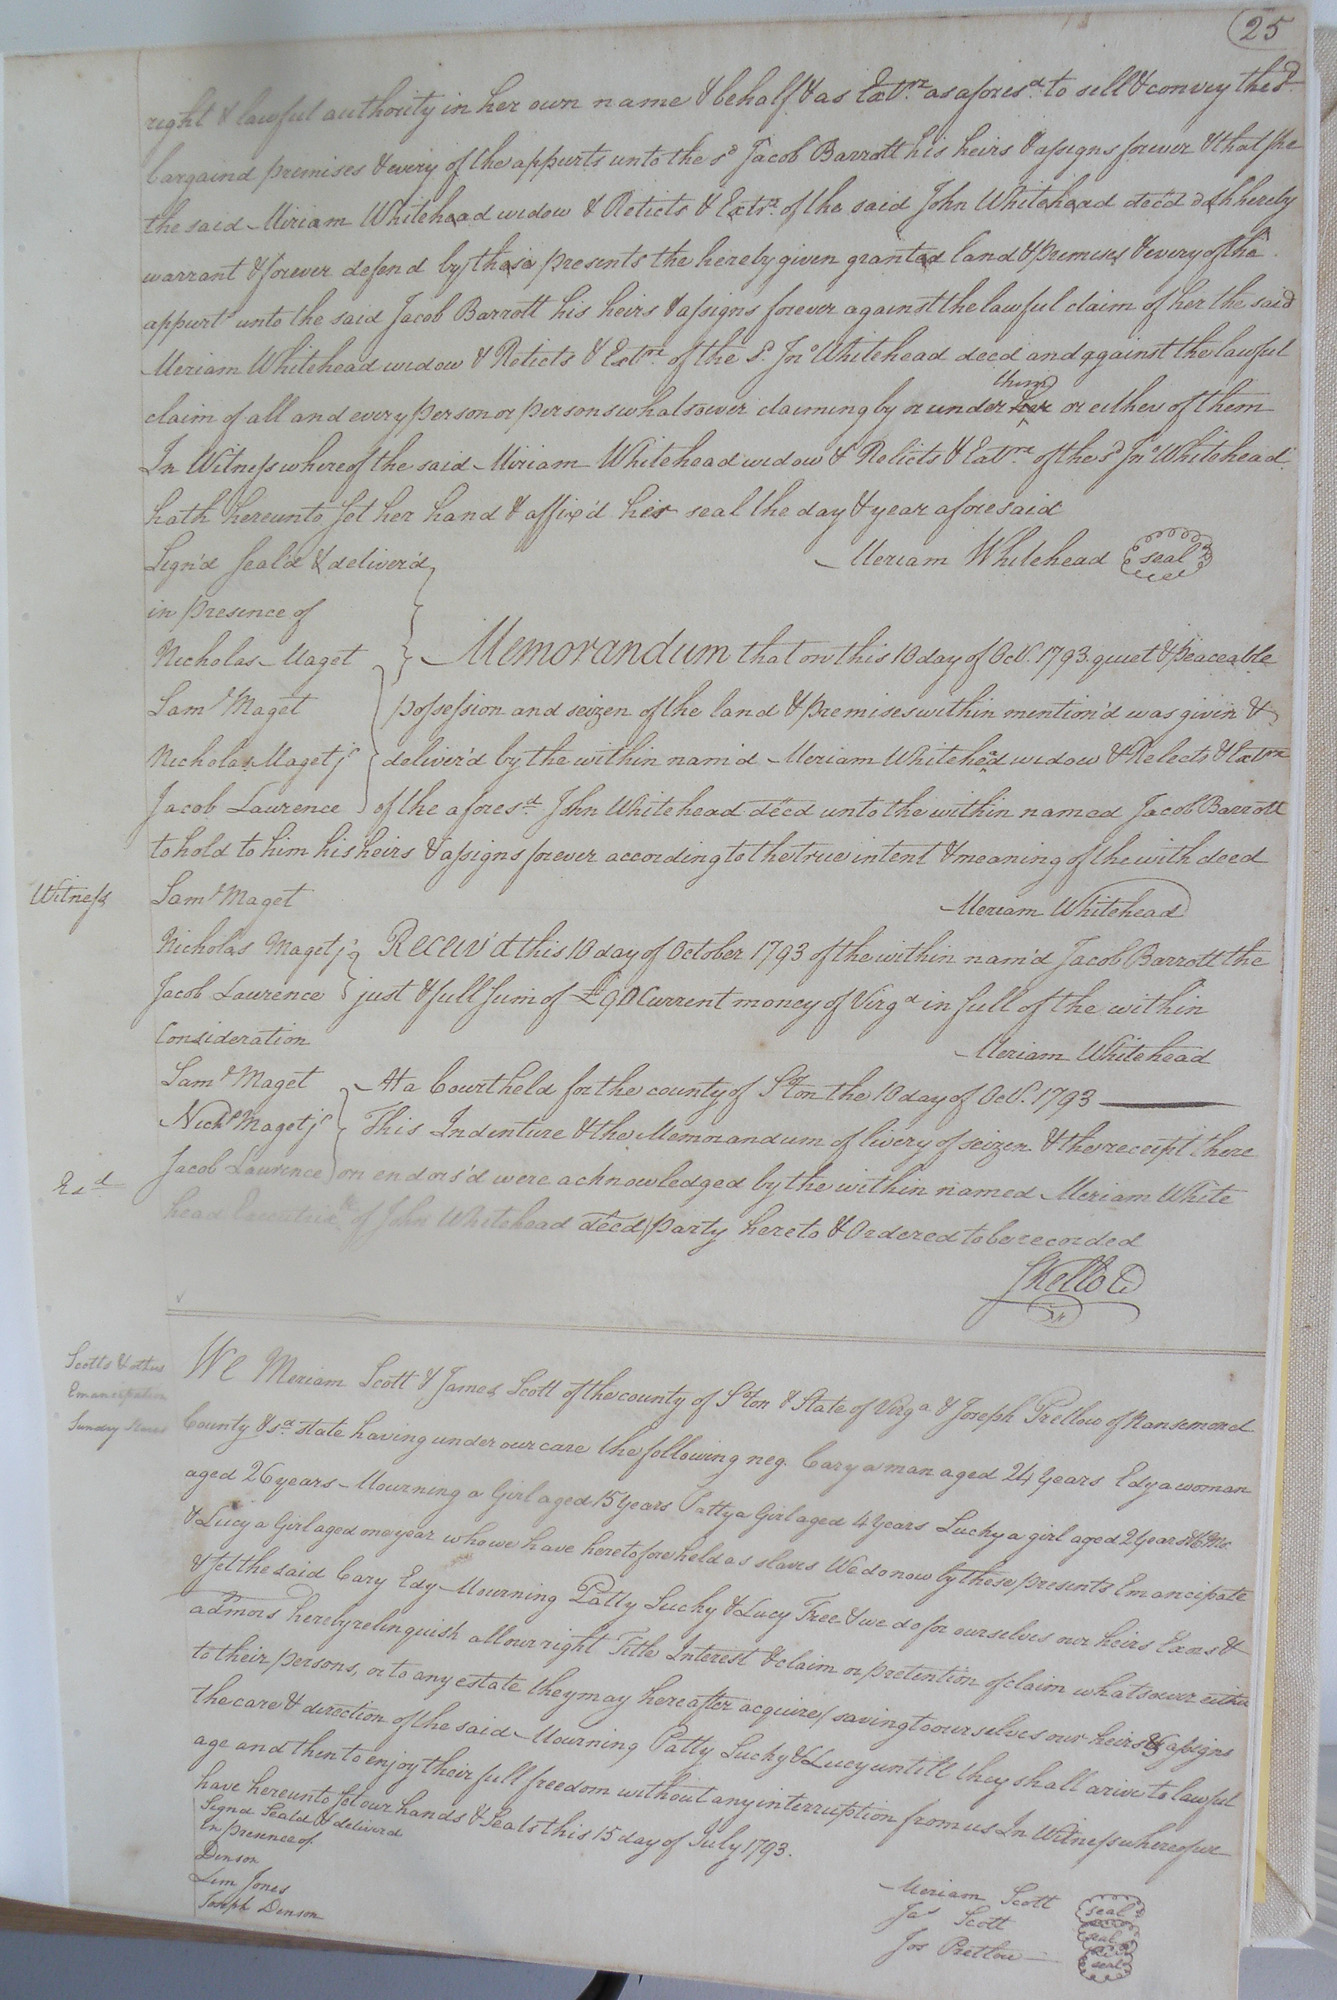 25
right & lawful authority in her own name & behalf & as Extrx. as aforesd. to sell & convey the sd.
bargaind premises & every of the appurts unto the sd Jacob Barrott his heirs & assigns forever & that she
the said Miriam Whitehead widow & Relicts & Extrx. of the said John Whitehead decd doth hereby
warrant & forever defend by these presents the hereby given granted land & premises & every of the
appurt unto the said Jacob Barrott his heirs & assigns forever against the lawful claim of her the said
Meriam Whitehead widow & Relicts & Extrx. of the sd. Jno. Whitehead decd and against the lawful
claim of all and every person or persons whatsoever claiming by or under her them or either of them
In Witness whereof the said Miriam Whitehead widow & Relicts & Extrx. of the sd Jno. Whitehead
hath hereunto set her hand & affix'd her seal the day & year aforesaid
Sign'd Seal'd & deliver'd
Meriam Whitehead seal
in presence of
Nicholas Maget
Memorandum that on this 10 day of Octr. 1793. quiet & peaceable
Saml Maget
possession and seizen of the land & premises within mention'd was givin &
Nicholas Maget jr
deliver'd by the within nam'd Meriam Whitehead widow & Relects & Extrx
Jacob Laurence
of the aforesd. John Whitehead decd unto the within named Jacob Barrott
to hold to him his heirs & assigns forever according to the true intent & meaning of the with deed
Witness
Saml Maget
Meriam Whitehead
Nicholas Maget jr
Receiv'd this 10 day of October 1793 of the within nam'd Jacob Barrott the
Jacob Laurence
just & full Sum of £90 Current money of Virga in full of the within
Consideration
Meriam Whitehead
Saml Maget
At a Court held for the county of Soton the 10 day of Octr. 1793
Nichs Maget jr
This Indenture & the Memorandum of livery of seizen & the receipt there
Jacob Laurence
on endors'd were acknowledged by the within named Meriam White
Exd
head Executrix of John Whitehead decd party hereto & Ordered to be recorded
SKello C
Scotts & others
Emancipation
Sundry Slaves
We Meriam Scott & James Scott of the county of Soton & State of Virga & Joseph Pretlow of Nansemond
County & sd. state having under our care the following neg. Cary a man aged 24 years Edy a woman
aged 26 years Mourning a Girl aged 15 years Patty a Girl aged 4 years Lucky a girl aged 2 years
& Lucy a Girl aged one year whowe have heretofore held as slaves We do now by these presents Emancipate
& set the said Cary Edy Mourning Patty Suchy & Lucy Free & we do for ourselves our heirs Exors &
admors hereby relinquish all our right Title Interest & claim or pretention of claim whatsoever either
to their persons, or to any estate they may hereafter acquire, saving to ourselves our heirs & assigns
the care & direction of the said Mourning Patty Suchy & Lucy untill they shall arive to lawful
age and then to enjoy their full freedom without any interruption from us In Witness whereof we
have hereunto set our hands & Seals this 15 day of July 1793.
Signd Seald & deliverd
In presence of
Denson
Lem Jones
Joseph Denson
Meriam Scott seal
Jas Scott seal
Jos Pretlow seal